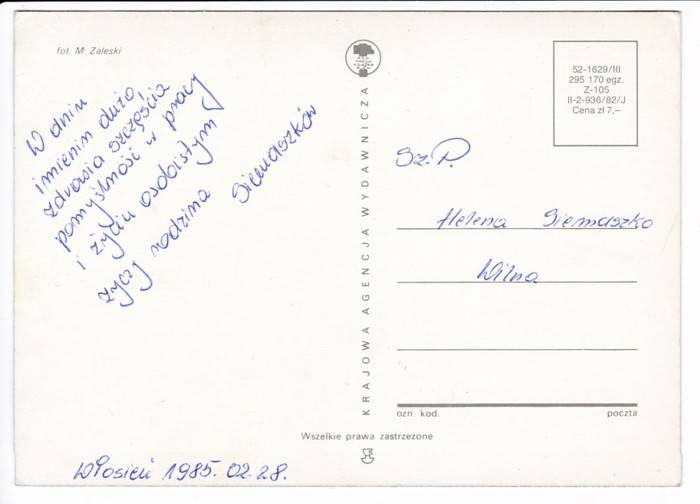 fot. M. Zaleski
W dniu
imienin dużo
zdrowia szczęścia
pomyślność w pracy
i życiu osobistym
życzy rodzina Siemaszków
KRAJOWA AGENCJA WYDAWNICZA
52-1629/III
295 170 egz.
Z-105
II-2-936/82/J
Cena zł 7,—
Sz. P.
Helena Siemaszko
Wilna
ozn. kod. poczta
Wszelkie prawa zastrzeżone
Włosień 1985.02.28.